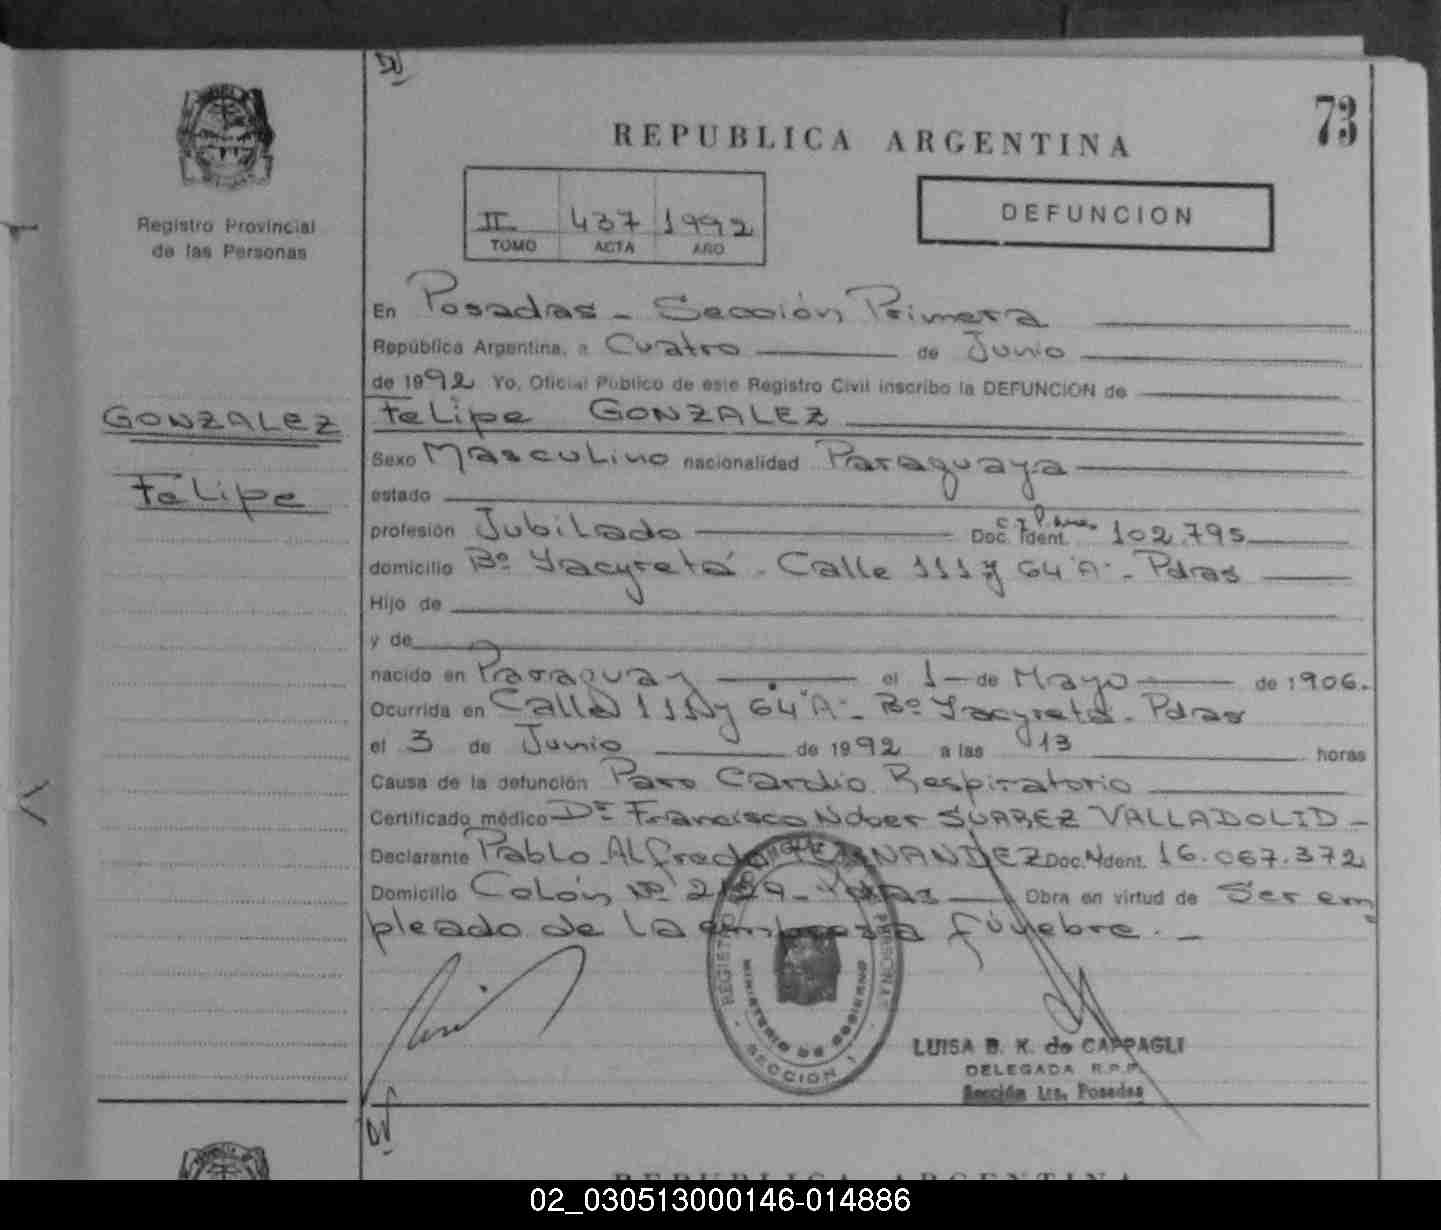 73
REPUBLICA ARGENTINA
Registro Provincial
de las Personas
II 437 1992
TOMO ACTA AÑO
DEFUNCION
En Posadas - Sección Primera
República Argentina, a Cuatro de Junio
de 1992 Yo, Oficial Público de este Registro Civil inscribo la DEFUNCION de
GONZALEZ
Felipe
Felipe GONZALEZ
Sexo Masculino nacionalidad Paraguaya
estado
profesión Jubilado Doc. Ident. 102.795
domicilio Bº Yacyretá - Calle 111 y 64 "A" - Pdas
Hijo de
y de
nacido en Paraguay el 1 de Mayo de 1906.
Ocurrida en Calle 111 y 64 "A" - Bº Yacyretá - Pdas
el 3 de Junio de 1992 a las 13 horas
Causa de la defunción Paro Cardio Respiratorio
Certificado médico Dr Francisco SUAREZ VALLADOLID -
Declarante Pablo Alfredo FERNANDEZ Doc. Ident. 16.067.372
Domicilio Colón Nº Pdas Obra en virtud de Ser em
pleado de la empresa fúnebre. -
REGISTRO PROVINCIAL DE LAS PERSONAS
MINISTERIO DE GOBIERNO
SECCION 1
LUISA B. K. de CAPPAGLI
DELEGADA R.P.P.
Sección 1ra. Posadas
REPUBLICA ARGENTINA
02_030513000146-014886